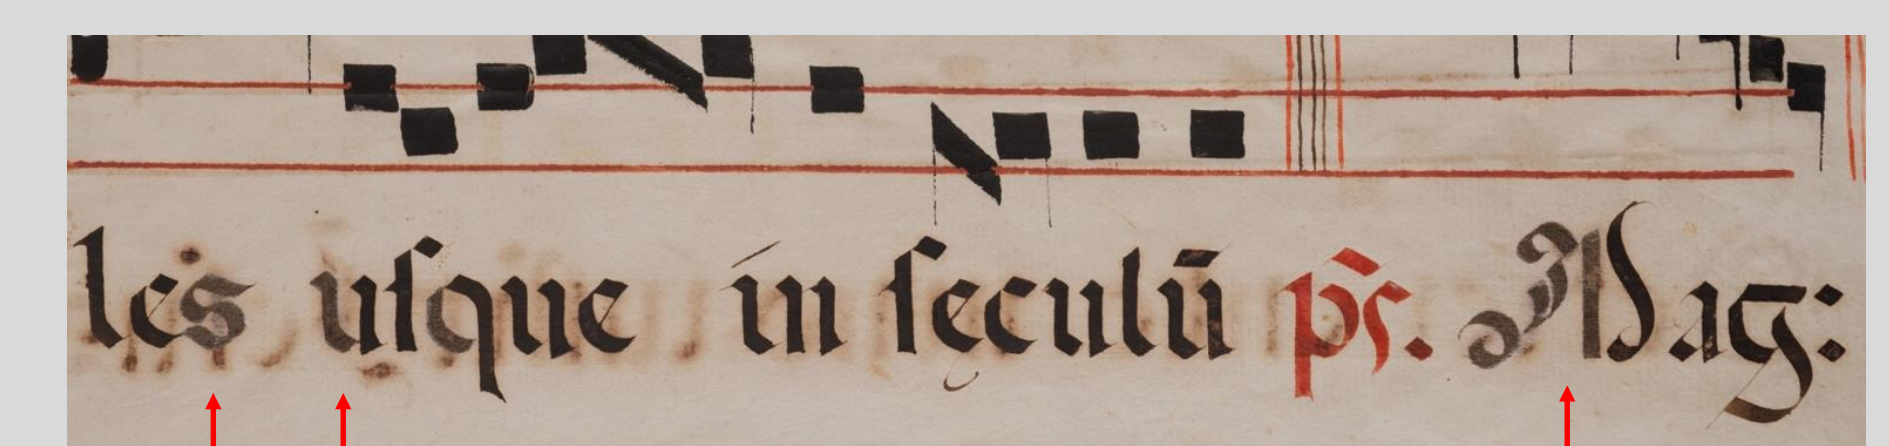 les uſque in ſęculū ps̄. Mag: